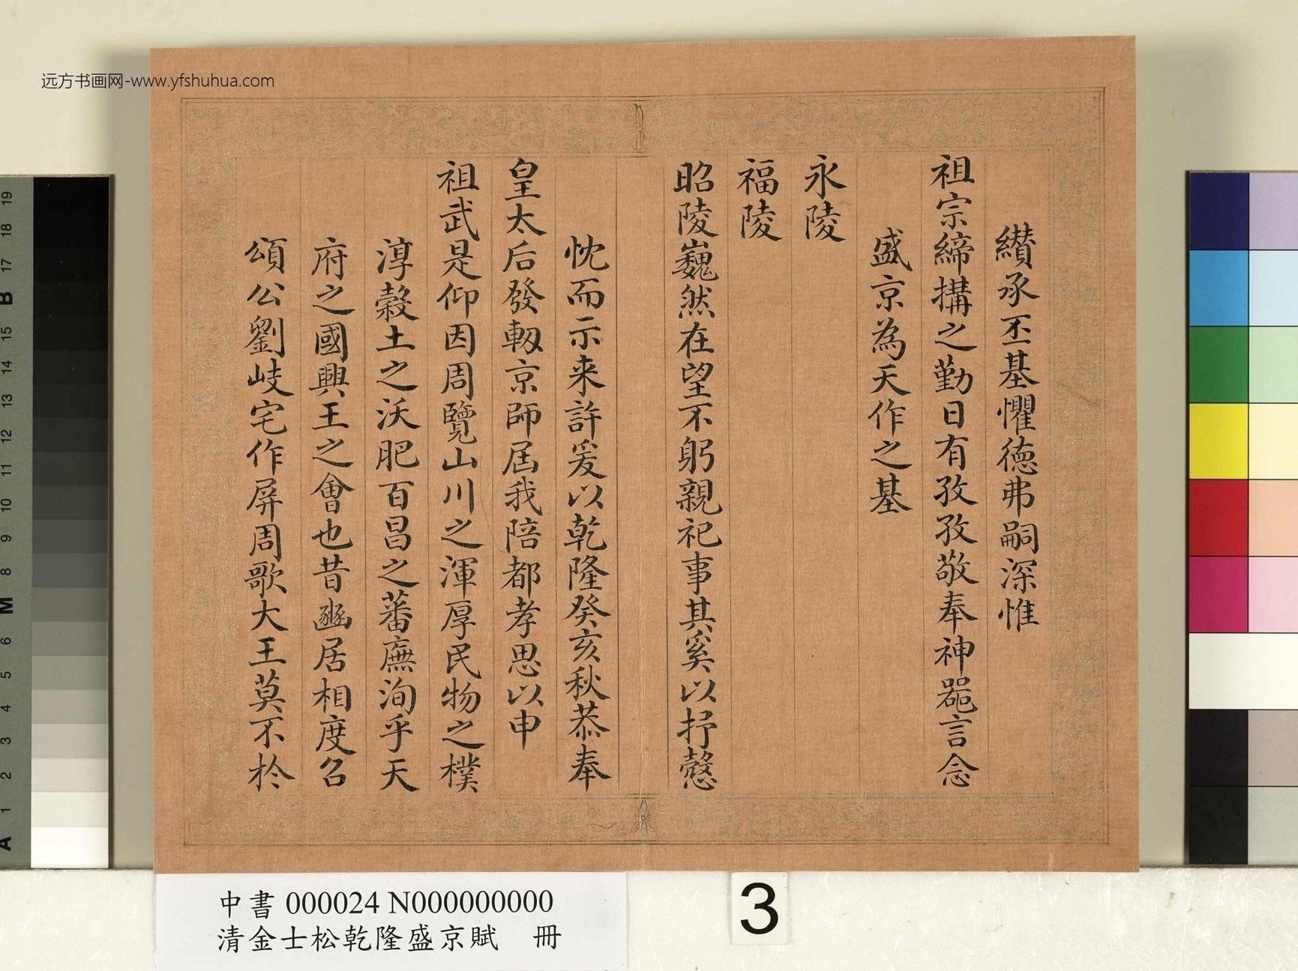 远方书画网-www.yfshuhua.com
纉承丕基懼德弗嗣深惟
祖宗締構之勤日有孜孜敬奉神噐言念
盛京為天作之基
永陵
福陵
昭陵巍然在望不躬親祀事其奚以抒慤
忱而示来許爰以乾隆癸亥秋恭奉
皇太后發軔京師屆我陪都孝思以申
祖武是仰因周覽山川之渾厚民物之樸
淳穀土之沃肥百昌之蕃廡洵乎天
府之國興王之會也昔豳居相度召
頌公劉岐宅作屏周歌大王莫不於
中書 000024 N000000000
清金士松乾隆盛京賦 冊
3
19
18
17
B
15
14
13
12
11
10
9
8
M
6
5
4
3
2
1
A